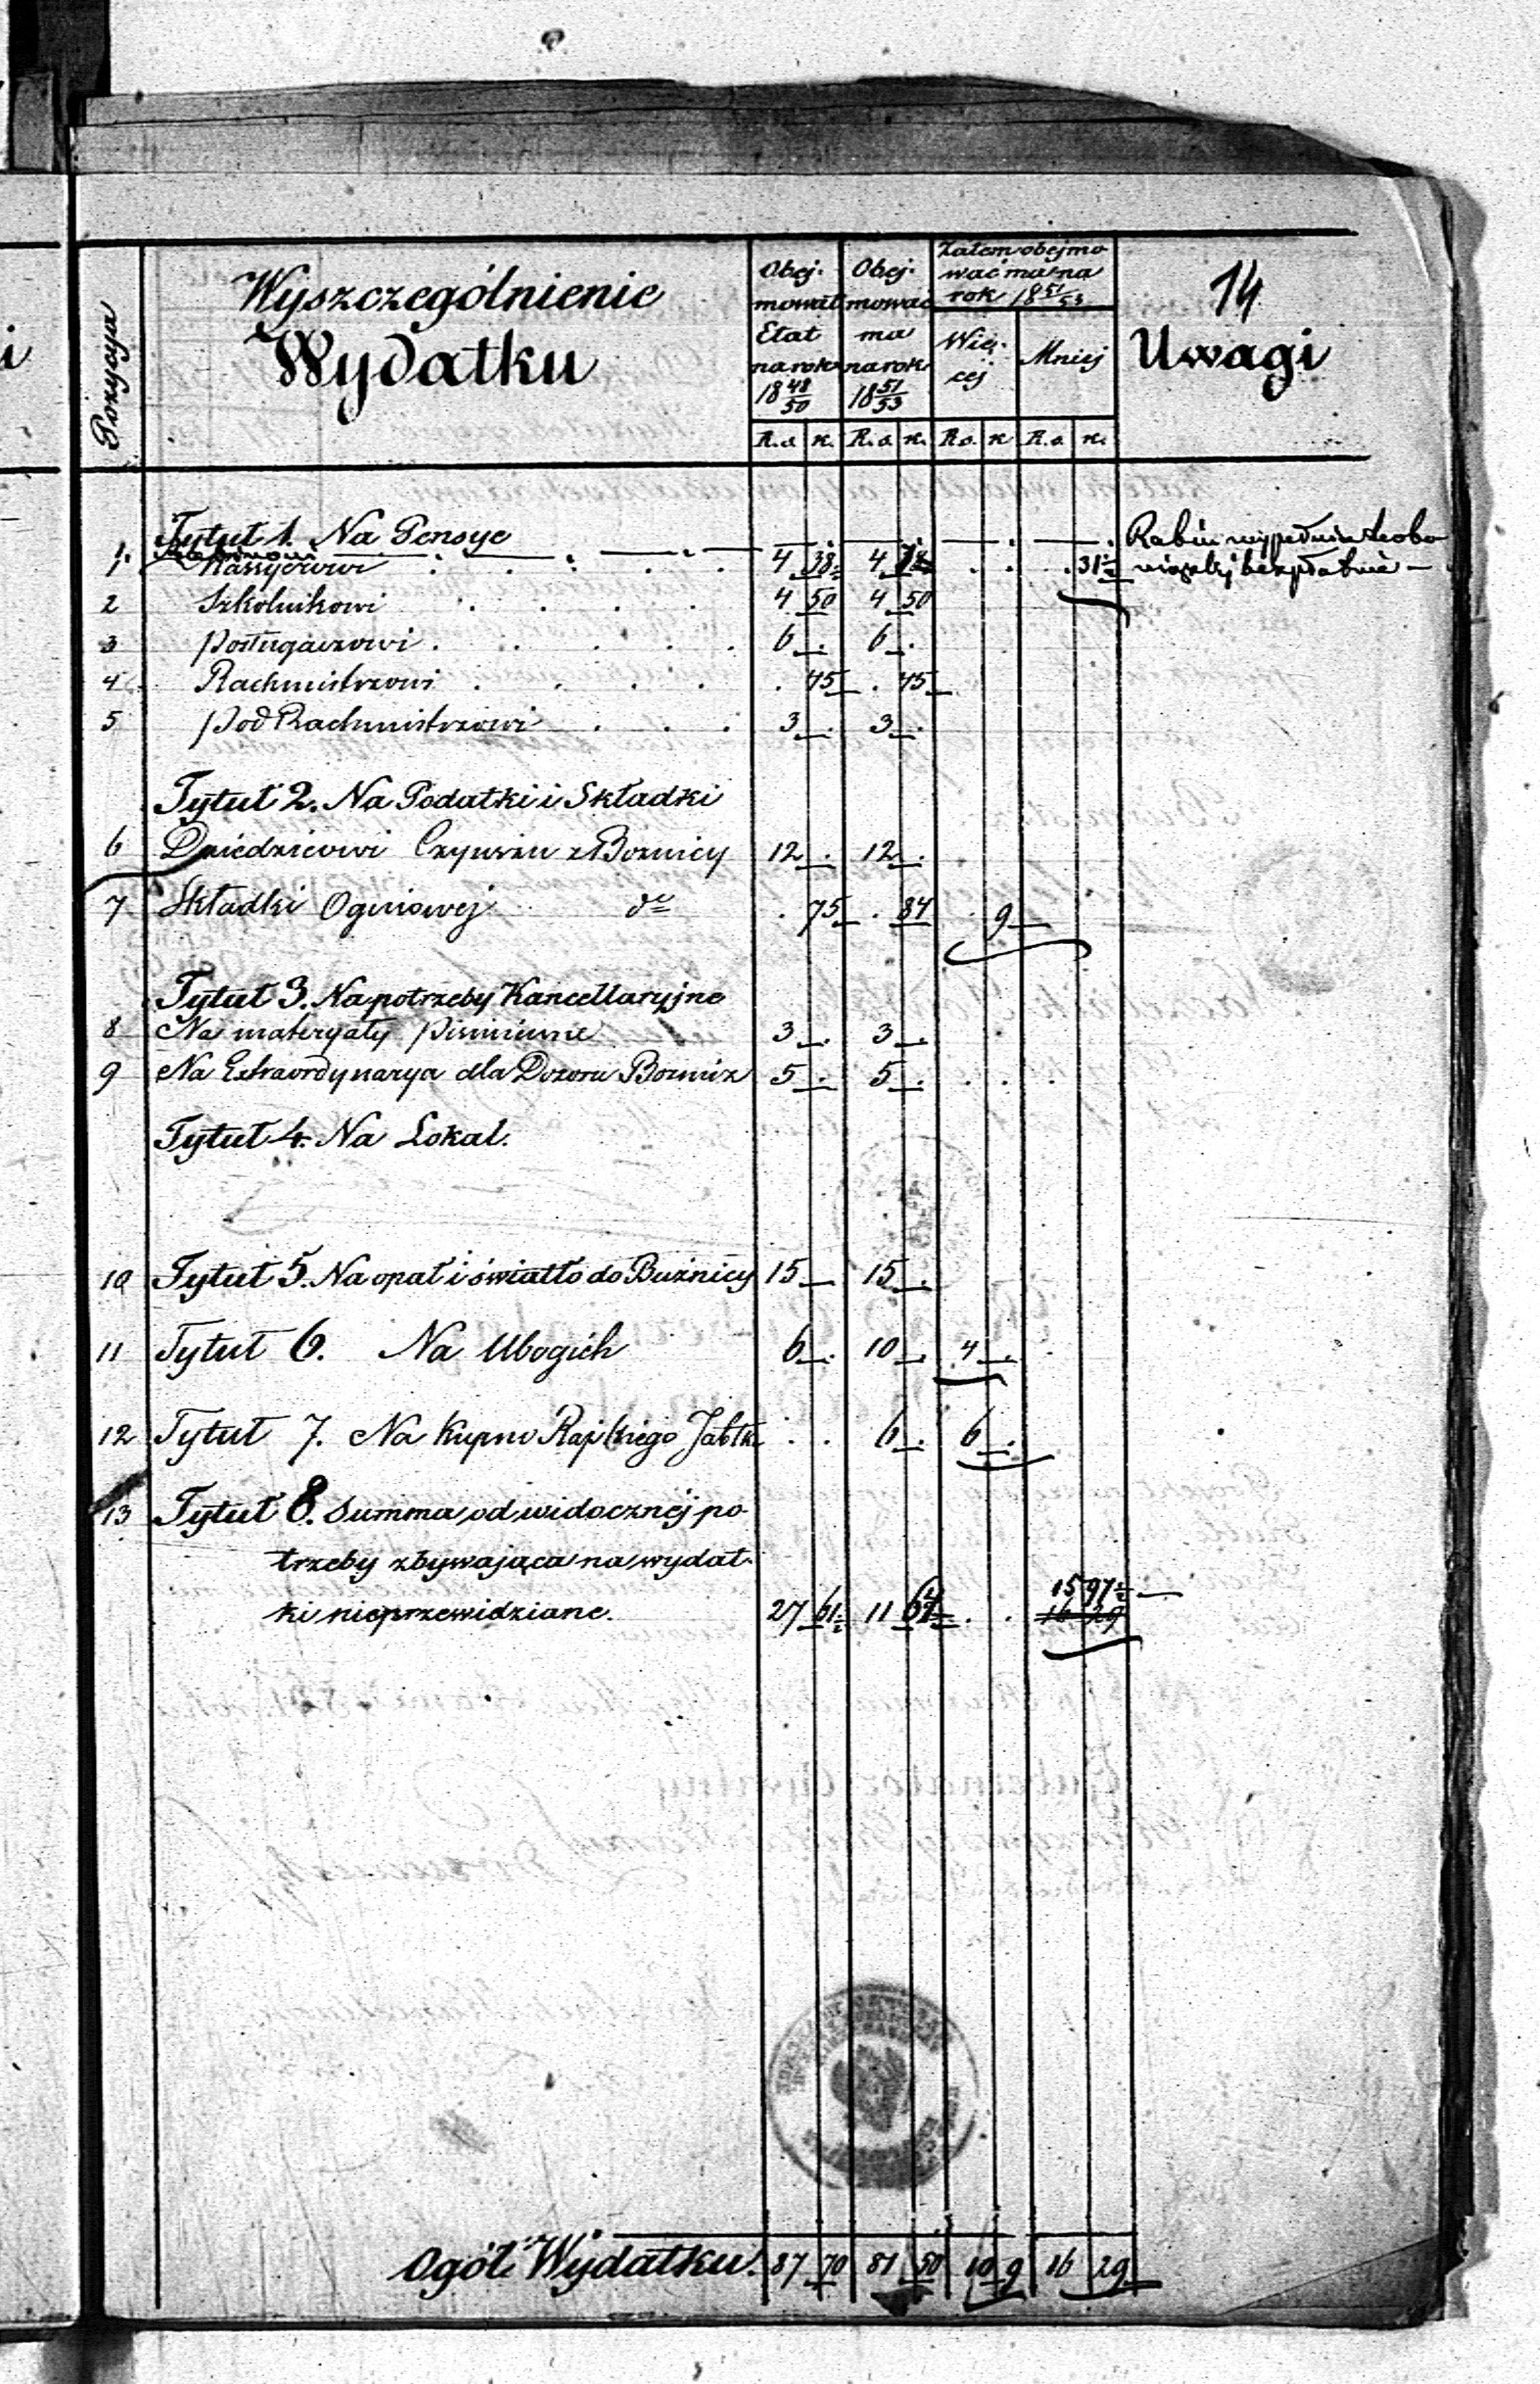 14
Pozycya
Wyszczególnienie
Wydatku
Obej-
mował
Etat
na rok
18 48/50
Obej-
mować
ma
na rok
18 51/53
Zatem obejmo
wać ma na
rok 18 51/53
Wię-
cej
Mniej
Uwagi
R. s. k. R. s. k. R. s. k R. s. k.
Tytuł 1. Na Pensye
1. Rabinowi
Rabin wypełnia te obo
1 Kassyerowi 4 38½ 4 31½
wiązki bezpłatnie —
2 Szkolnikowi 4 50 4 50
3 Posługaczowi 6 6
4 Rachmistrzowi 75 75
5 Pod Rachmistrzowi 3 3
Tytuł 2. Na Podatki i Składki
6 Dziedzicowi Czynszu z Boznicy 12 12
7 Składki Ogniowej do 75 84 9
Tytuł 3. Na potrzeby Kancellaryjne
8 Na materyały piśmienne 3 3
9 Na Extraordynarya dla Dozoru Boznicz 5 5
Tytuł 4. Na Lokal.
10 Tytuł 5. Na opał i światło do Buźnicy 15 15
11 Tytuł 6. Na Ubogich 6 10 4
12 Tytuł 7. Na Kupno Rajskiego Jabłk 6 6
13 Tytuł 8. Summa od widocznéj po-
trzeby zbywająca na wydat-
15 97½
ki nieprzewidziane. 27 61½ 11 16 29
Ogół Wydatku. 87 70 81 50 10 9 16 29